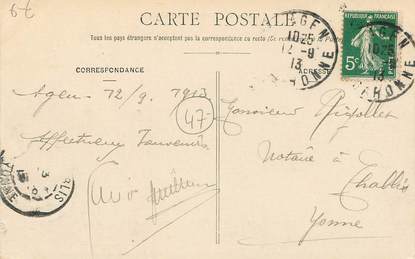 6€
CARTE POSTALE
Tous les pays étrangers n'acceptent pas la correspondance au recto (Se
CORRESPONDANCE
ADRESSE
AGEN
10 25
12 - 9
13
RONNE
REPUBLIQUE FRANÇAISE
5c
POSTES
Agen 12/9. 1913
Affectueux Souvenirs
47
Monsieur
Notaire à
Chablis
Yonne